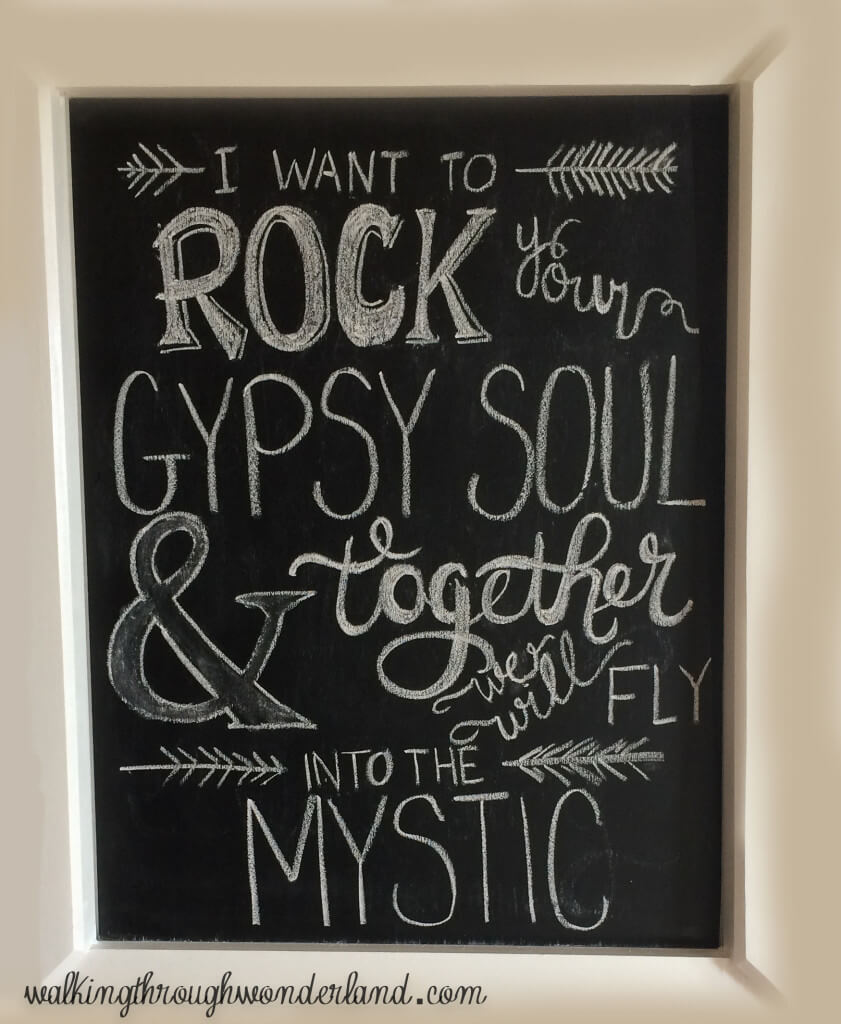 I WANT TO
ROCK your
GYPSY SOUL
& together
we
will FLY
INTO THE
MYSTIC
walkingthroughwonderland.com